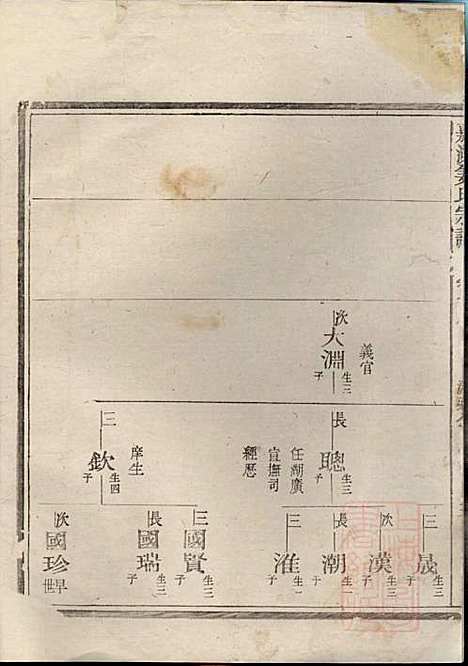 義官
次
大淵
生三子
長
聰
生三子
任湖廣
宣撫司
經歷
三
欽
生四子
庠生
三
晟
生三子
次
漢
生三子
長
潮
生一子
三
淮
生一子
三
國賢
生三子
長
國瑞
生三子
次
國珍
早世